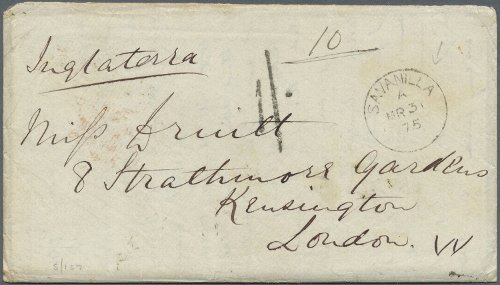 10
Inglaterra
SAVANILLA
A
MR 31
75
Miss Druitt
8 Strathmore Gardens
Kensington
London. W